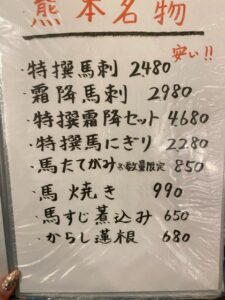 熊本名物
安い!!
・特撰馬刺 2480
・霜降馬刺 2980
・特撰霜降セット 4680
・特撰馬にぎり 2280
・馬たてがみ ※数量限定 850
・馬焼き 990
・馬すじ煮込み 650
・からし蓮根 680